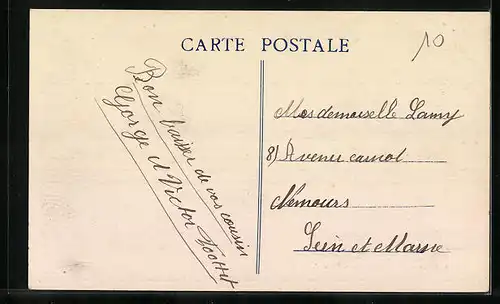 CARTE POSTALE
10
Bon baiser de vos cousin
Gorge et Victor
Mesdemoiselle Lamy
81 Avenue carnot
Nemours
Sein et Marne